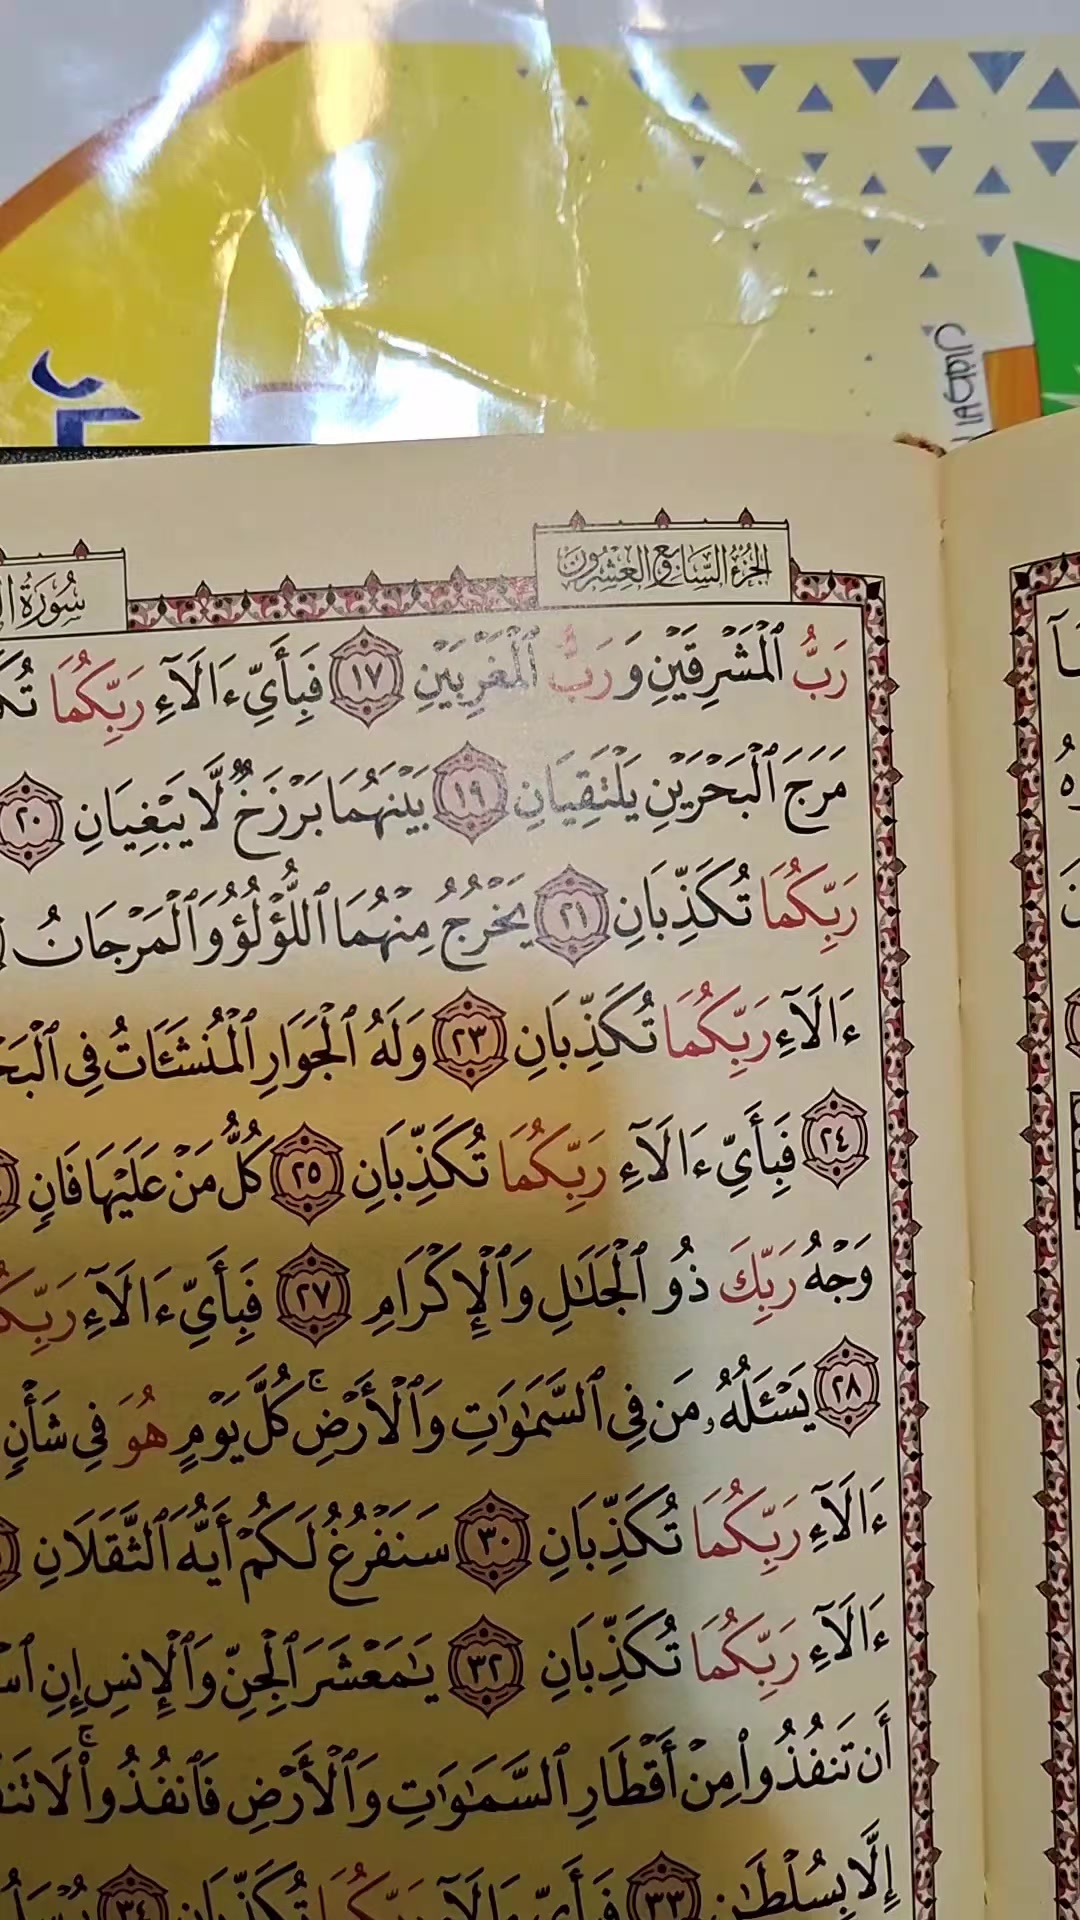 الجزء السابع والعشرون
سُورَةُ
رَبُّ ٱلْمَشْرِقَيْنِ وَرَبُّ ٱلْمَغْرِبَيْنِ ١٧ فَبِأَيِّ ءَالَآءِ رَبِّكُمَا
مَرَجَ ٱلْبَحْرَيْنِ يَلْتَقِيَانِ ١٩ بَيْنَهُمَا بَرْزَخٌ لَّا يَبْغِيَانِ ٢٠
رَبِّكُمَا تُكَذِّبَانِ ٢١ يَخْرُجُ مِنْهُمَا ٱللُّؤْلُؤُ وَٱلْمَرْجَانُ
ءَالَآءِ رَبِّكُمَا تُكَذِّبَانِ ٢٣ وَلَهُ ٱلْجَوَارِ ٱلْمُنشَـَٔاتُ فِى
٢٤ فَبِأَيِّ ءَالَآءِ رَبِّكُمَا تُكَذِّبَانِ ٢٥ كُلُّ مَنْ عَلَيْهَا فَانٍ
وَجْهُ رَبِّكَ ذُو ٱلْجَلَـٰلِ وَٱلْإِكْرَامِ ٢٧ فَبِأَيِّ ءَالَآءِ
٢٨ يَسْـَٔلُهُۥ مَن فِى ٱلسَّمَـٰوَٰتِ وَٱلْأَرْضِ ۚ كُلَّ يَوْمٍ هُوَ فِى شَأْنٍ
ءَالَآءِ رَبِّكُمَا تُكَذِّبَانِ ٣٠ سَنَفْرُغُ لَكُمْ أَيُّهَ ٱلثَّقَلَانِ
ءَالَآءِ رَبِّكُمَا تُكَذِّبَانِ ٣٢ يَـٰمَعْشَرَ ٱلْجِنِّ وَٱلْإِنسِ إِنِ
أَن تَنفُذُوا۟ مِنْ أَقْطَارِ ٱلسَّمَـٰوَٰتِ وَٱلْأَرْضِ فَٱنفُذُوا۟ ۚ لَا
إِلَّا بِسُلْطَـٰنٍ ٣٣ فَبِأَيِّ ءَالَآءِ رَبِّكُمَا تُكَذِّبَانِ ٣٤